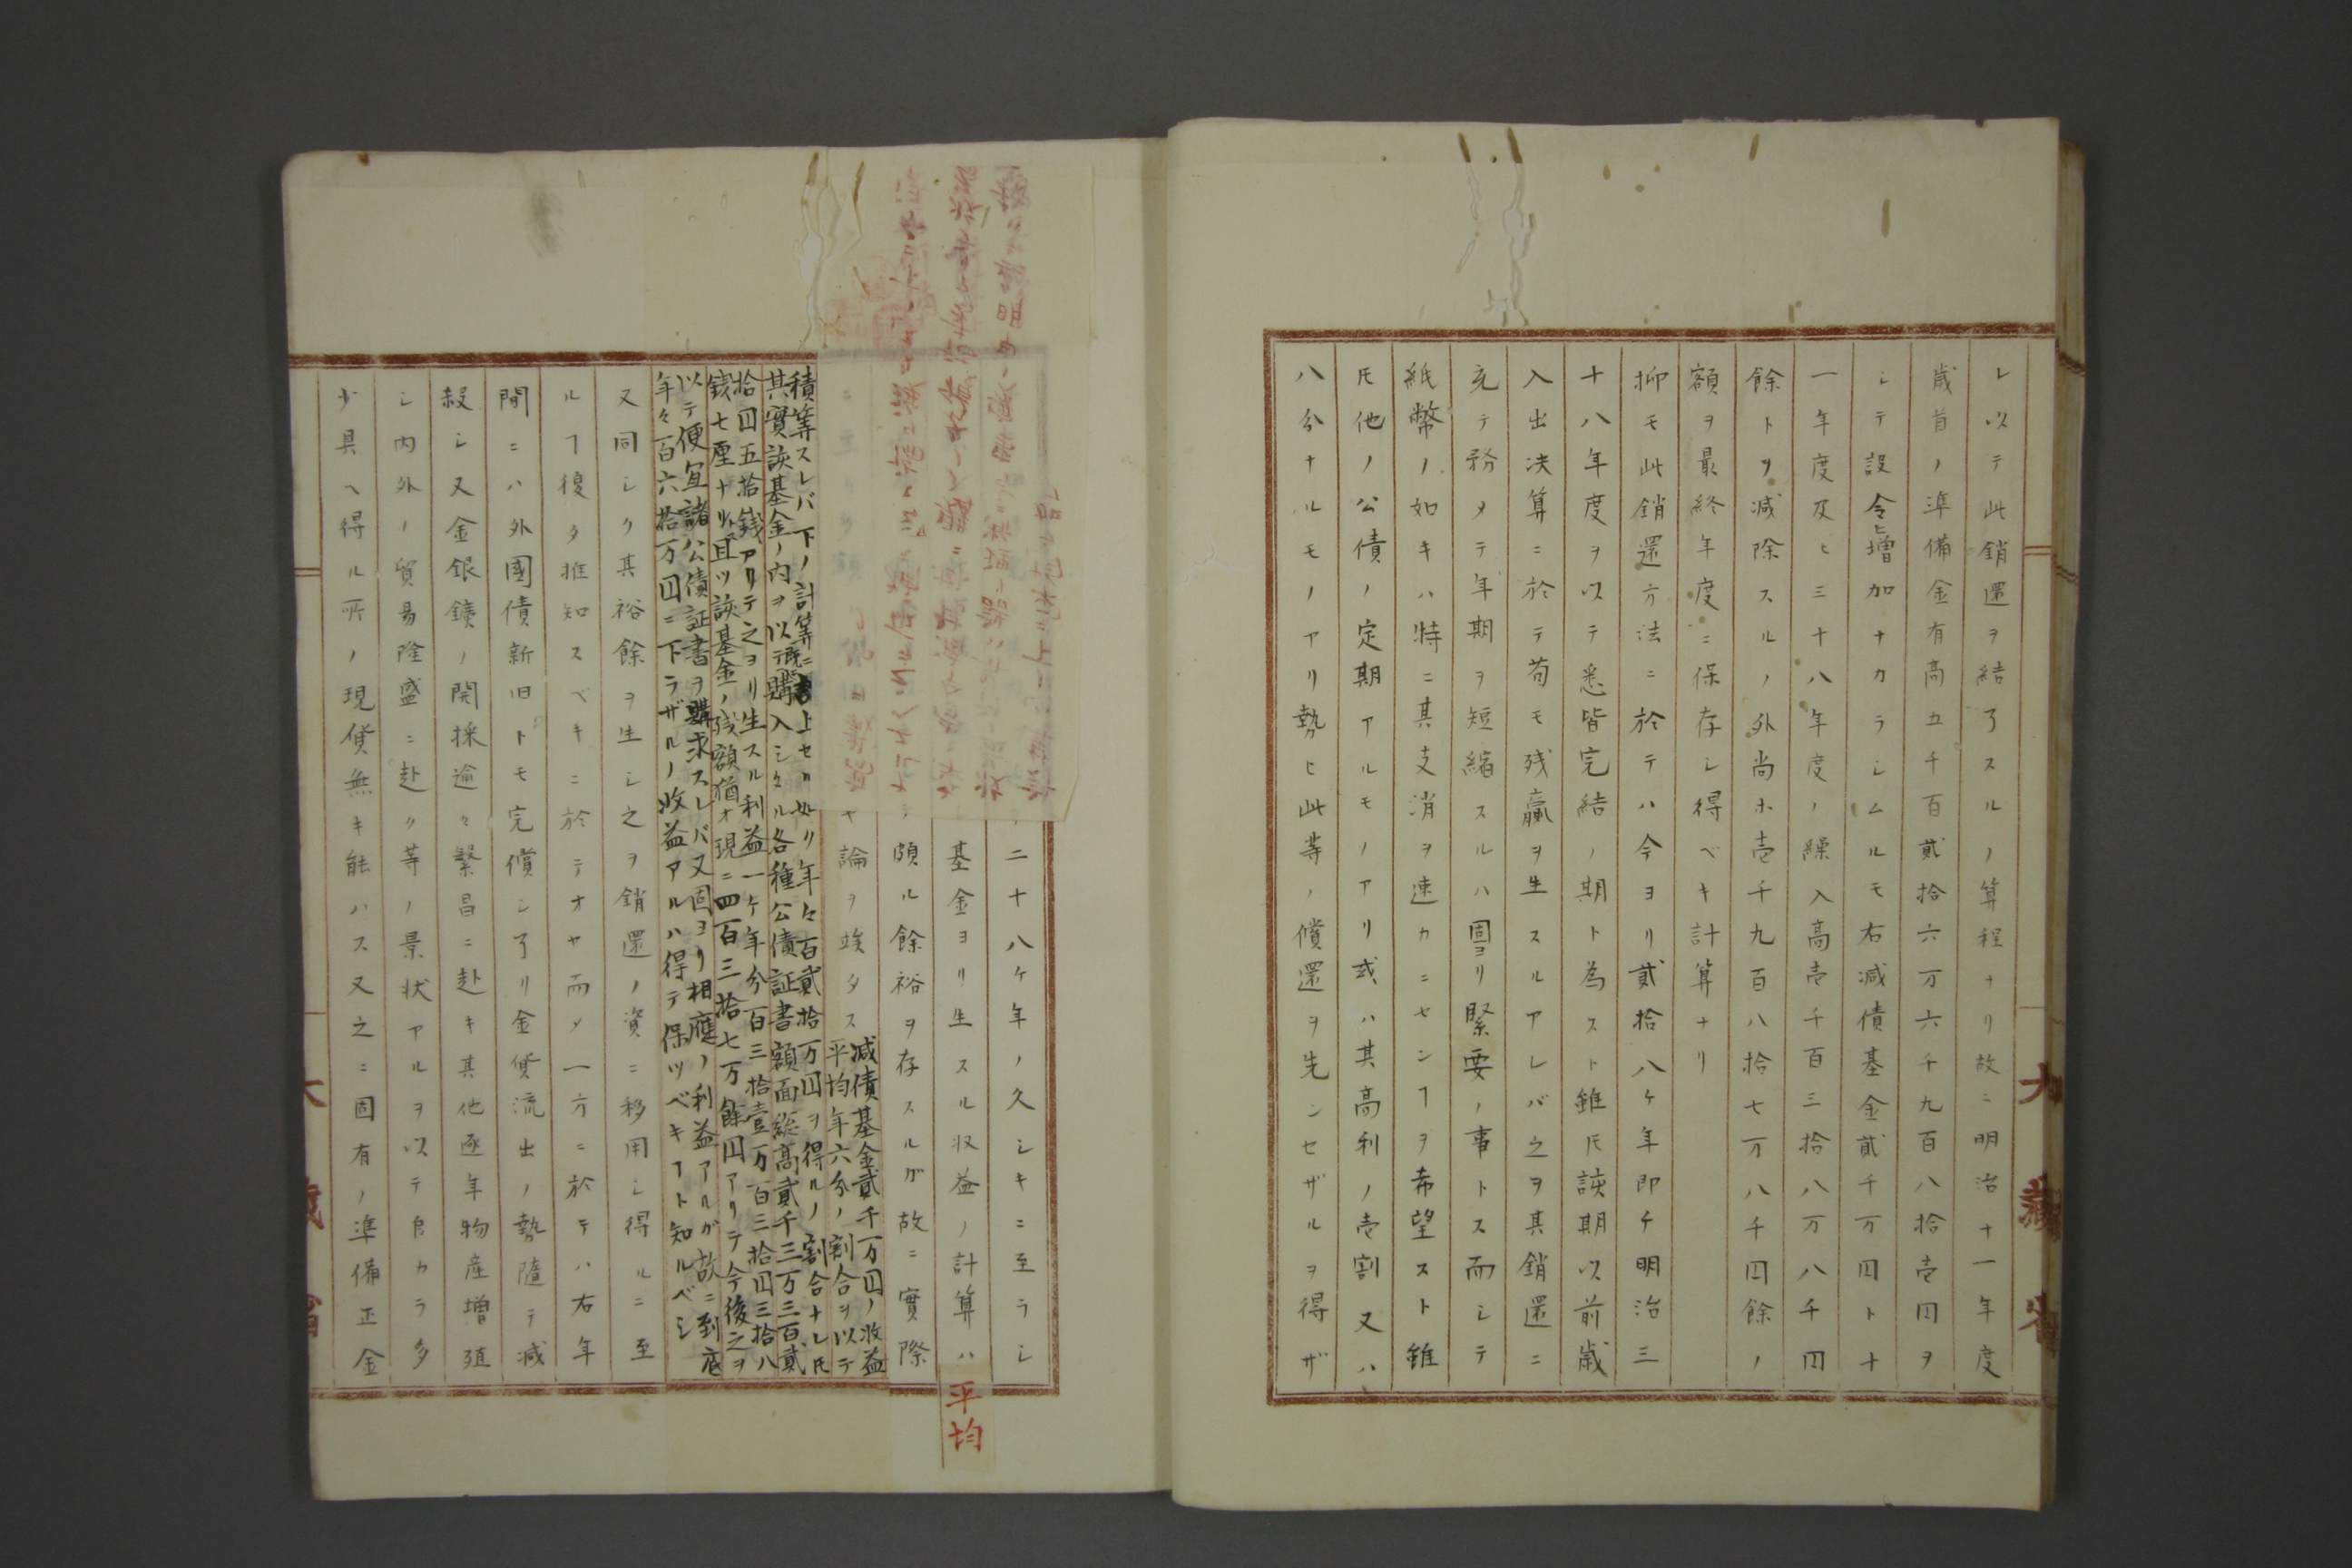 レ以テ此銷還ヲ結了スルノ算程ナリ故ニ明治十一年度
歳首ノ準備金有高五千百貳拾六万六千九百八拾壱円ヲ
シテ設令ヒ増加ナカラシムルモ右減債基金貳千万円ト十
一年度及ヒ三十八年度ノ繰入高壱千百三拾八万八千円
餘トヲ減除スルノ外尚ホ壱千九百八拾七万八千円餘ノ
額ヲ最終年度ニ保存シ得ベキ計算ナリ
抑モ此銷還方法ニ於テハ今ヨリ貳拾八ケ年即チ明治三
十八年度ヲ以テ悉皆完結ノ期ト為スト雖𪜈該期以前歳
入出决算ニ於テ苟モ残贏ヲ生スルアレバ之ヲ其銷還ニ
充テ務メテ年期ヲ短縮スルハ固ヨリ緊要ノ事トス而シテ
紙幣ノ如キハ特ニ其支消ヲ速カニセンヿヲ希望スト雖
𪜈他ノ公債ノ定期アルモノアリ或ハ其高利ノ壱割又ハ
八分ナルモノアリ勢ヒ此等ノ償還ヲ先ンセザルヲ得ザ
二十八ケ年ノ久シキニ至ラシ
基金ヨリ生スル収益ノ計算ハ
平均
頗ル餘裕ヲ存スルガ故ニ實際
論ヲ竢タス
減債基金貳千万円ノ收益
平均年六分ノ割合ヲ以テ
積算スレバ下ノ計算ニ書上セル如リ年々百貳拾万円ヲ得ルノ割合ナレ𪜈
其實該基金ノ内ヲ以テ既ニ購入シタル各種公債証書額面総高貳千三万三百貳
拾円五拾銭アリテ之ヨリ生スル利益一ケ年分百三拾壹万百三拾円三拾八
銭七厘ナリ且ツ該基金ノ残額猶オ現ニ四百三拾七万餘円アリテ今後之ヲ
以テ便宜諸公債証書ヲ購求スレバ又固ヨリ相應ノ利益アルガ故ニ到底
年々百六拾万円ニ下ラザルノ收益アルハ得テ保ツベキヿト知ルベシ
又同シク其裕餘ヲ生シ之ヲ銷還ノ資ニ移用シ得ルニ至
ルヿ復タ推知スベキニ於テオヤ而メ一方ニ於テハ右年
間ニハ外國債新旧トモ完償シ了リ金貨流出ノ勢隨テ減
殺シ又金銀鑛ノ開採逾々繁昌ニ赴キ其他逐年物産増殖
シ内外ノ貿易隆盛ニ赴ク等ノ景状アルヲ以テ自カラ多
少具ヘ得ル所ノ現貨無キ能ハス又之ニ固有ノ準備正金
大藏省
大藏省